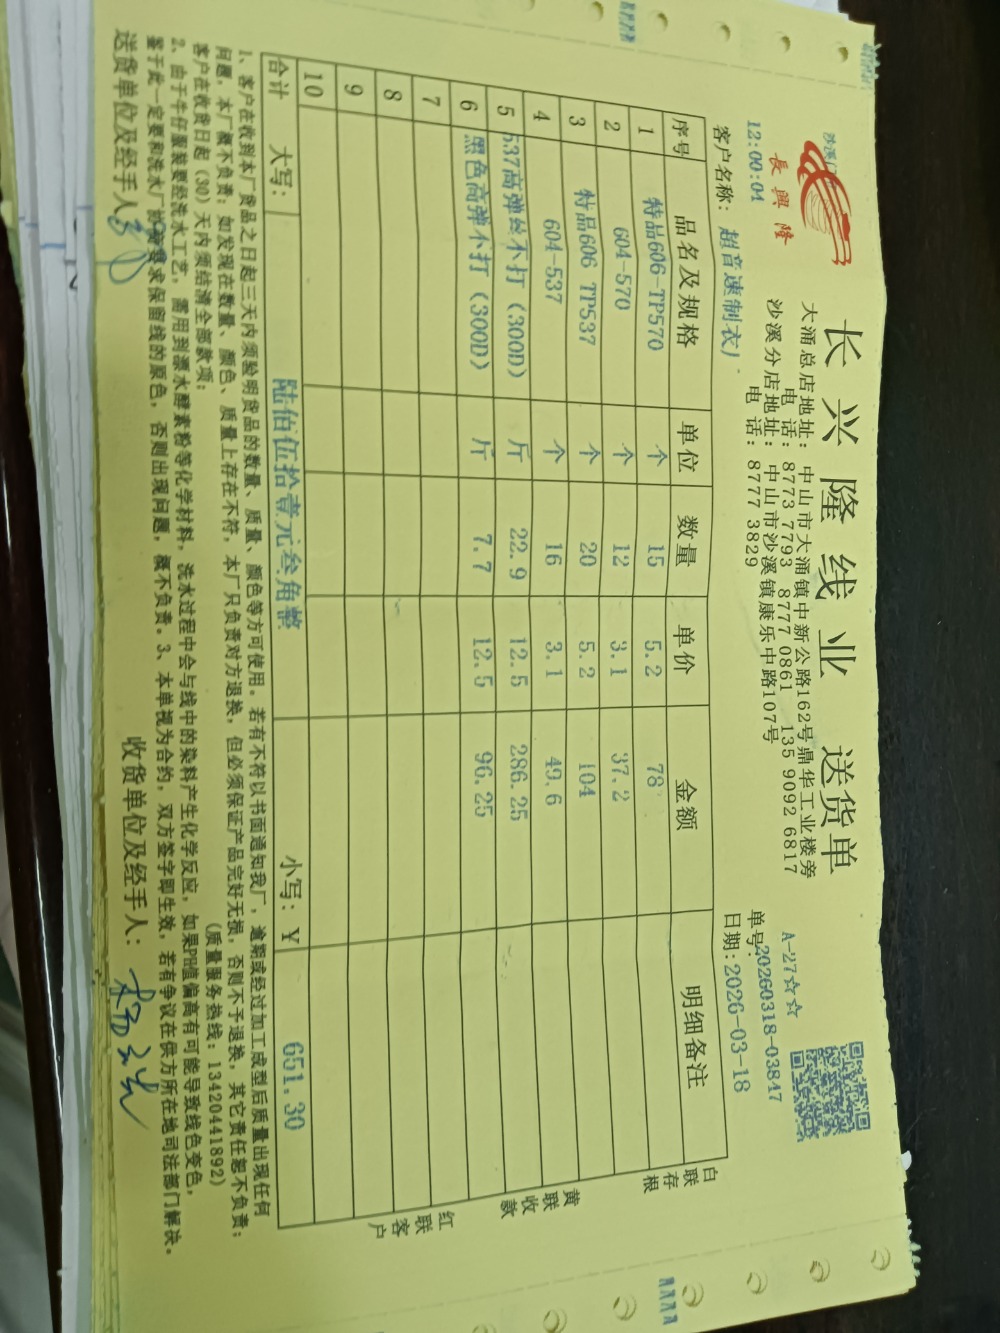 長興隆
长兴隆线业 送货单
大涌总店地址: 中山市大涌镇中新公路162号鼎华工业楼旁
电 话: 8773 7793 8777 0861 135 9092 6817
沙溪分店地址: 中山市沙溪镇康乐中路107号
电 话: 8777 3829
A-27☆☆
单号:20260318-03847
12:00:04
客户名称: 超音速制衣厂
日期: 2026-03-18
序号 品名及规格 单位 数量 单价 金额 明细备注
1 特品606-TP570 个 15 5.2 78
2 604-570 个 12 3.1 37.2
3 特品606 TP537 个 20 5.2 104
4 604-537 个 16 3.1 49.6
5 537高弹丝不打(300D) 斤 22.9 12.5 286.25
6 黑色高弹不打(300D) 斤 7.7 12.5 96.25
7
8
9
10
合计 大写: 陆佰伍拾壹元叁角整 小写: ¥ 651.30
白联存根
黄联收款
红联客户
1、客户在收到本厂货品之日起三天内须验明货品的数量、质量、颜色等方可使用。若有不符以书面通知我厂,逾期或经过加工成型后质量出现任何
问题,本厂概不负责;如发现在数量、颜色、质量上存在不符,本厂只负责对方退换,但必须保证产品完好无损,否则不予退换,其它责任恕不负责;
客户在收货日起(30)天内须结清全部款项; (质量服务热线: 13420441892)
2、由于牛仔服装要经洗水工艺,需用到漂水酵素粉等化学材料,洗水过程中会与线中的染料产生化学反应,如果PH值偏高有可能导致线色变色,
鉴于此一定要和洗水厂协商要求保留线的原色,否则出现问题,概不负责。3、本单视为合约,双方签字即生效,若有争议在供方所在地司法部门解决。
送货单位及经手人:
收货单位及经手人: